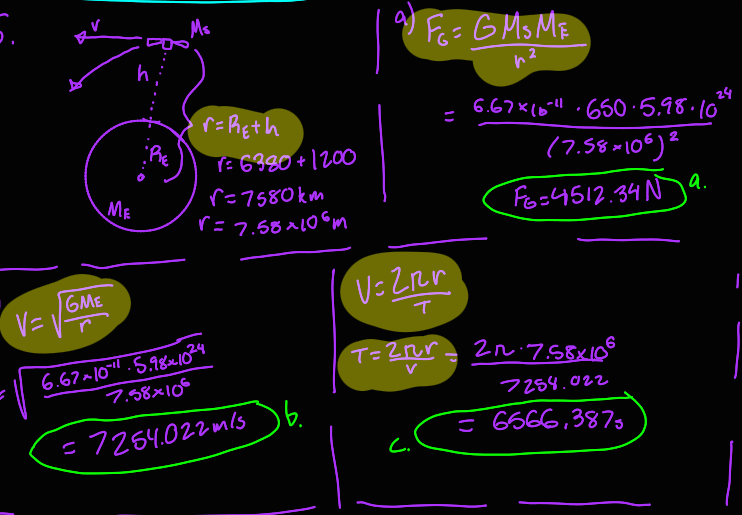 5.
v
Ms
h
r=R_E+h
R_E
r=6380+1200
r=7580km
r=7.58×10⁶m
M_E
a) F_G = G Ms M_E / r²
= 6.67×10⁻¹¹ · 650 · 5.98·10²⁴ / (7.58×10⁶)²
F_G=4512.34N a.
V=√(GM_E / r)
= √(6.67×10⁻¹¹ · 5.98×10²⁴ / 7.58×10⁶)
= 7254.022m/s b.
V=2πr / T
T=2πr / v = 2π · 7.58×10⁶ / 7254.022
c. = 6566.387s